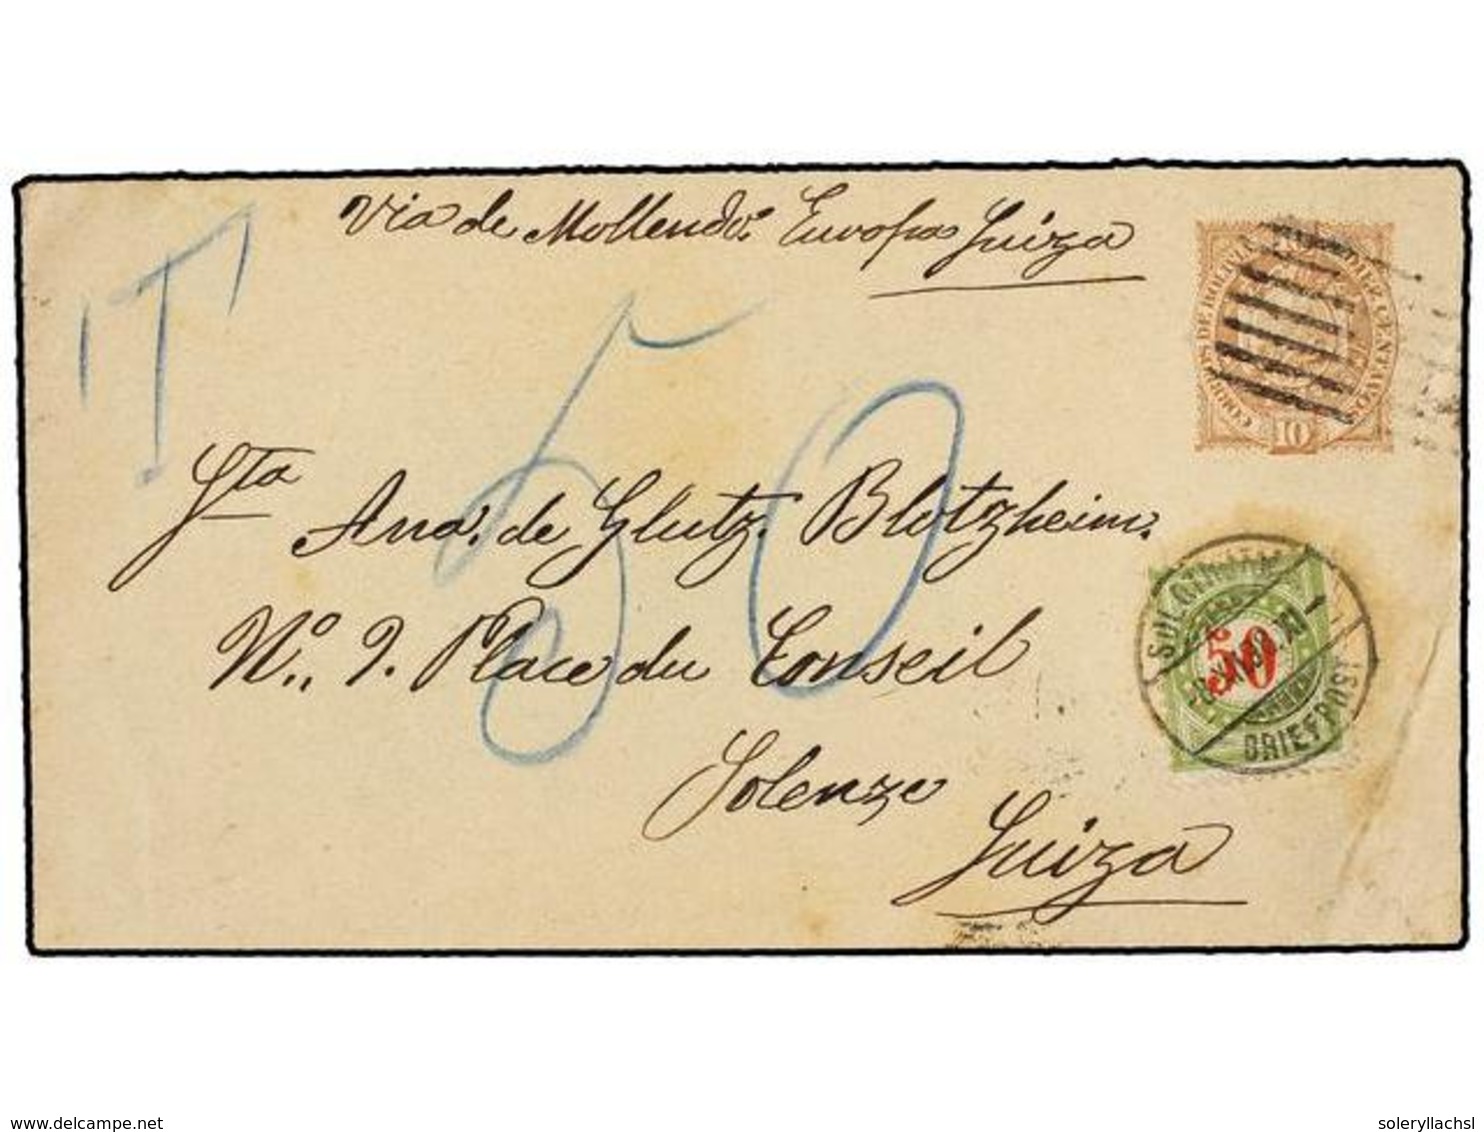 Via de Mollendo. Europa Suiza
"T"
CORREOS DE BOLIVIA DIEZ CENTAVOS
10
50
Sta
Ana. de Glutz. Blotzheim.
Nº. 9. Place du Conseil
Solenze
Suiza
SOLOTHURN
50
BRIEFPOST
delcampe.net
soleryllachsl